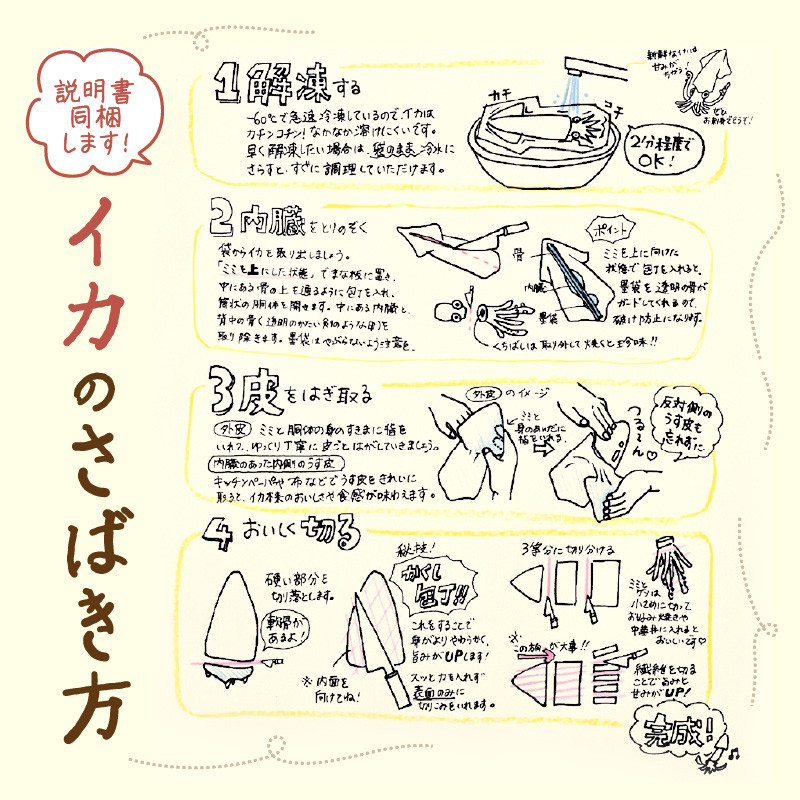 説明書
同梱
します!
イカのさばき方
1 解凍する
-60℃で急速冷凍しているので、イカは
カチンコチン!なかなか溶けにくいです。
早く解凍したい場合は、袋のまま冷水に
さらすと、すぐに調理していただけます。
カチ
コチ
2分程度で
OK!
新鮮なイカは
甘みが
ちがう!
ぜひ
お刺身でどうぞ!
2 内臓をとりのぞく
袋からイカを取り出しましょう。
「ミミを上にした状態」でまな板に置き、
中にある骨の上を通るように包丁を入れ、
筒状の胴体を開せます。中にある内臓と、
背中の骨(透明のかたい
取り除きます。墨袋はやぶらないよう注意を、
骨
内臓
墨袋
くちばしは取り外して焼くと珍味!!
ポイント
ミミを上に向けた
状態で包丁を入れると、
墨袋を透明の骨が
ガードしてくれるので、
破け防止になります。
3 皮をはぎ取る
外皮 ミミと胴体の身のすきまに指を
いれて、ゆっくり丁寧に皮ごとはがしていきましょう。
内臓のあった内側のうす皮
キッチンペーパーや布などでうす皮をきれいに
取ると、イカ本来のおいしさや食感が味わえます。
外皮のイメージ
ミミと
身のあいだに
指をいれる
つる~ん♡
反対側の
うす皮も
忘れずに
4 おいしく切る
硬い部分を
切り落とします。
軟骨が
あるよ!
秘技!
かくし
包丁!!
これをすることで
身がよりやわらかく、
旨みがUPします!
スッと力を入れず
表面のみに
切りこみをいれます。
※内面を
向けてね!
3等分に切り分ける
※この方向が大事!!
ミミと
ゲソは
小さめに切って
お好み焼きや
中華丼に入れると
おいしいです♡
繊維を切る
ことで旨みと
甘みがUP!
完成!!